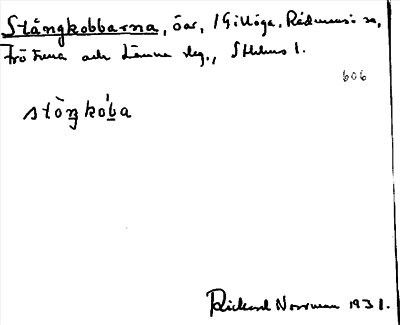 Stångkobbarna, öar, i Gillöga, Rådmansö sn,
Frötuna och Länna slg., Sthlms l.
606
stòŋkób̲a
Rickard Norrman 1931.